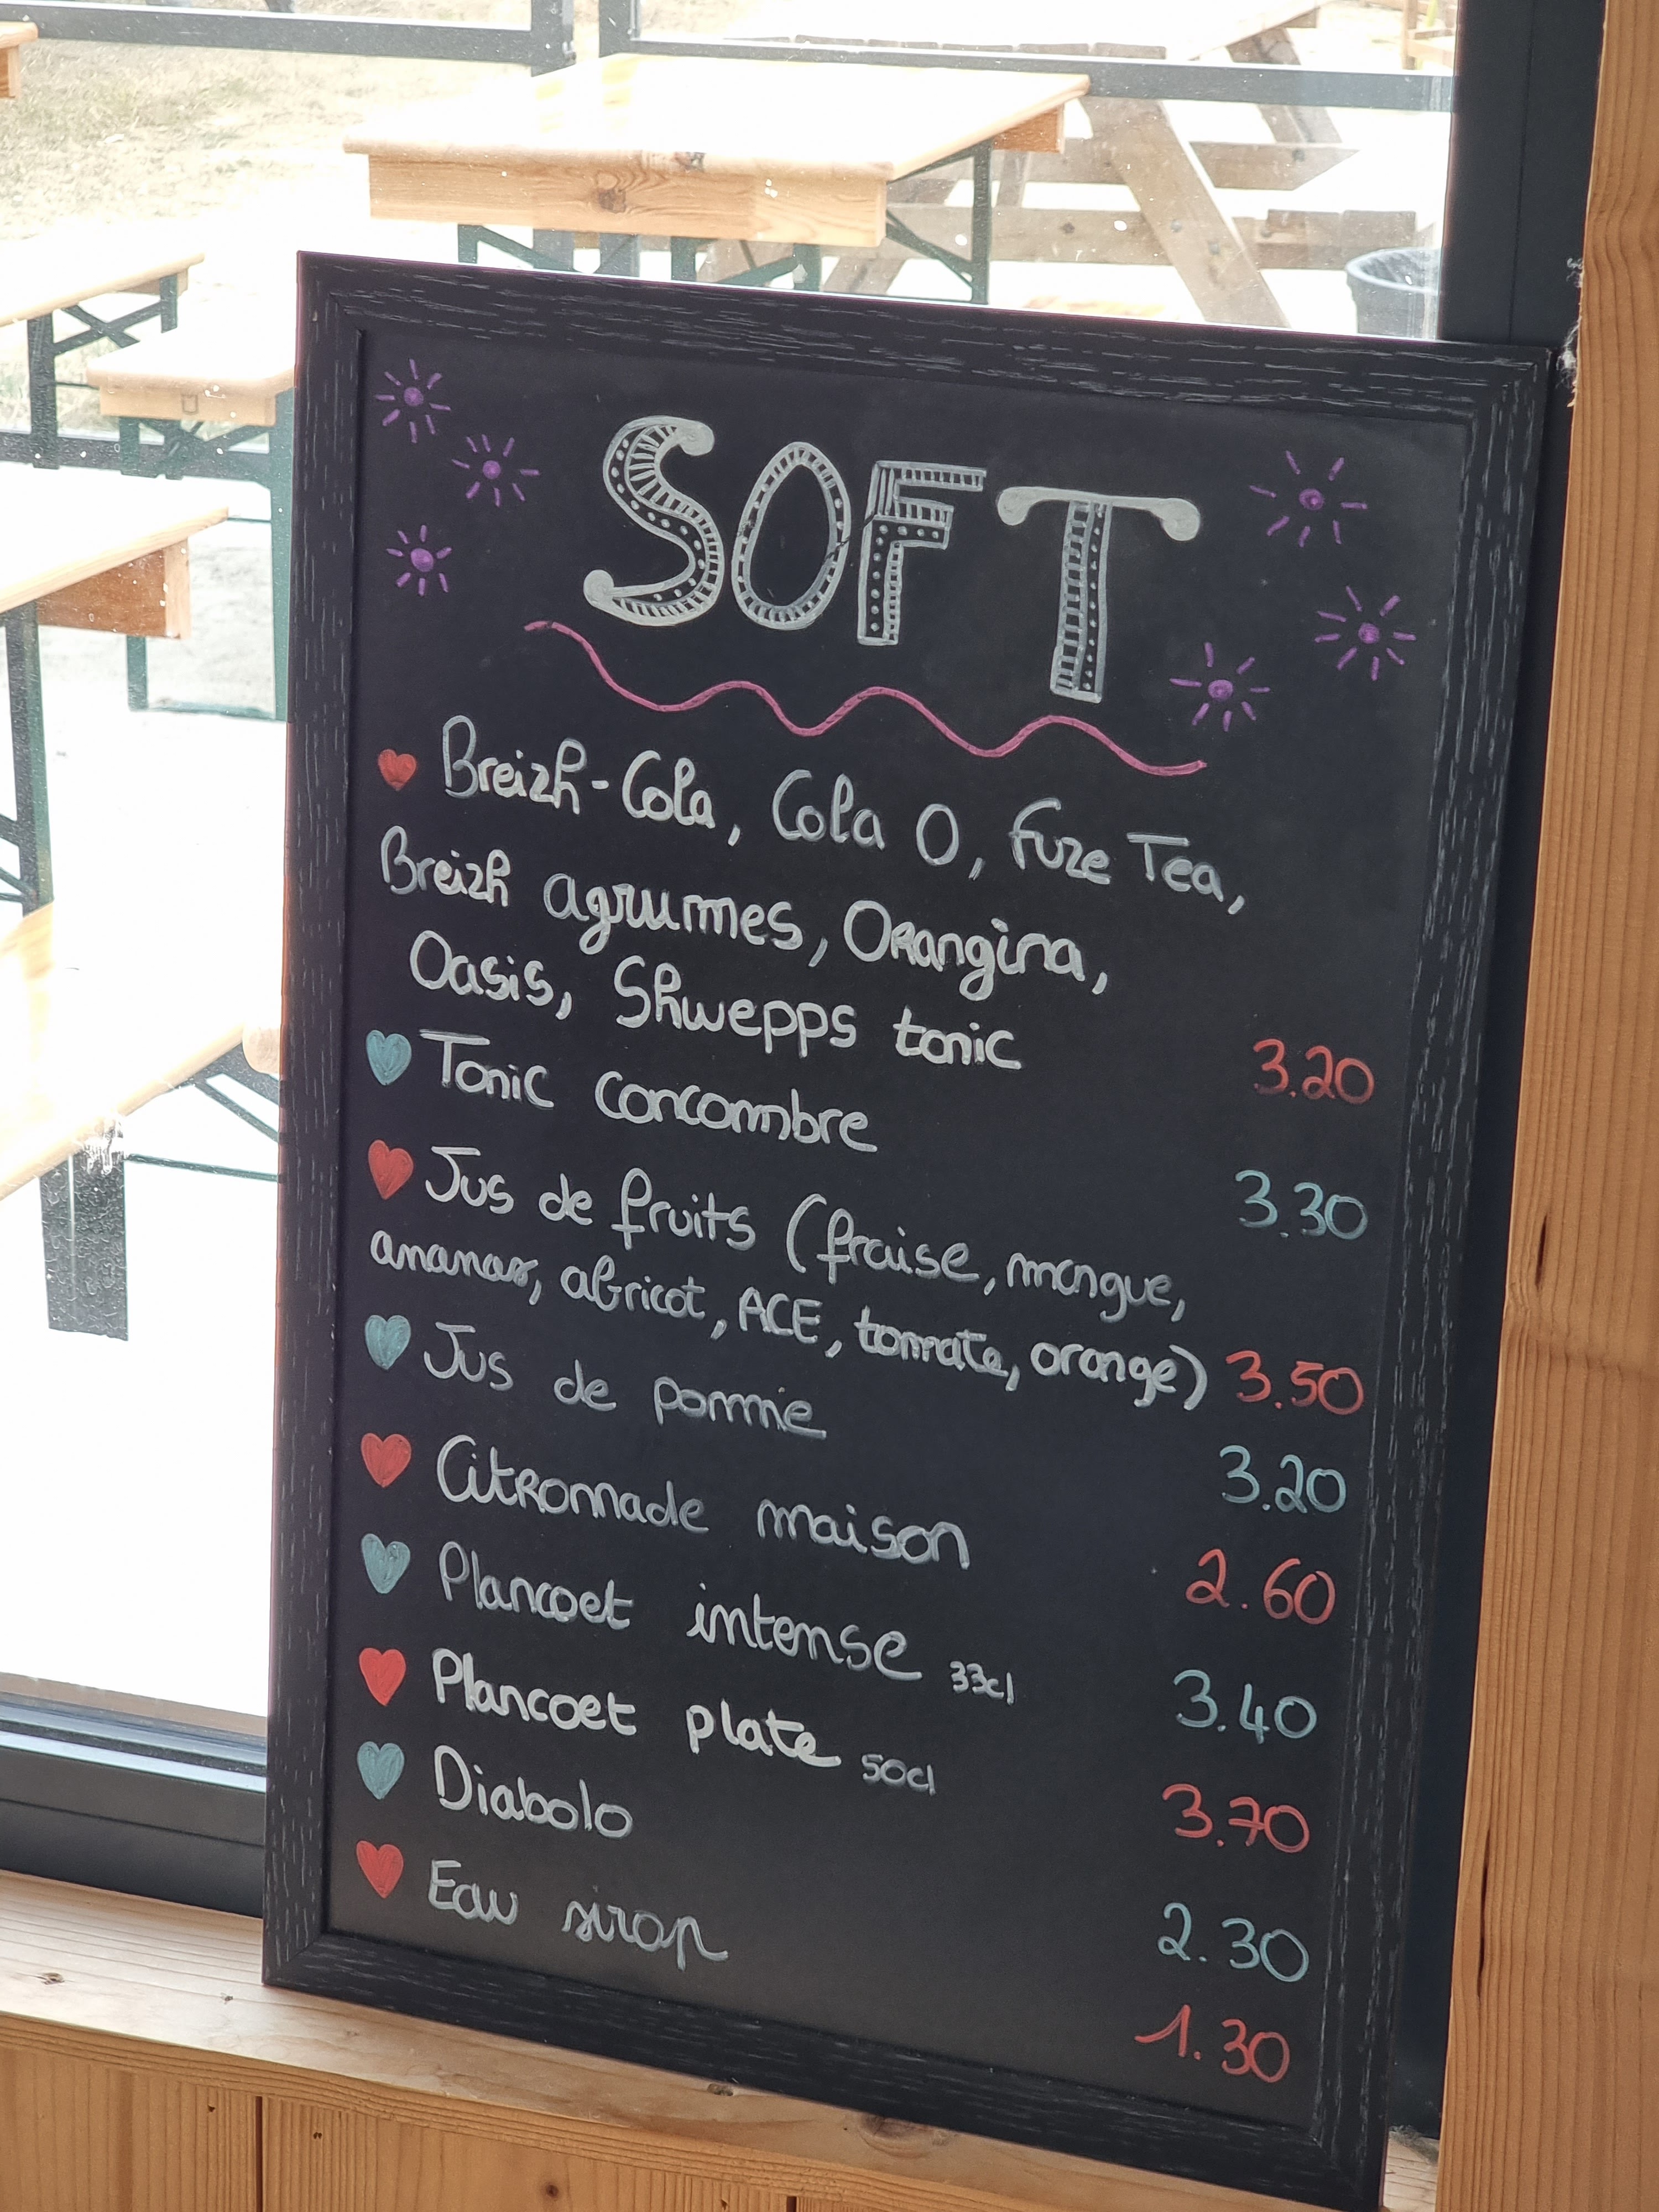 SOFT
Breizh-Cola, Cola 0, Fuze Tea,
Breizh agrumes, Orangina,
Oasis, Shwepps tonic 3.20
Tonic concombre 3.30
Jus de fruits (fraise, mangue,
ananas, abricot, ACE, tomate, orange) 3.50
Jus de pomme 3.20
Citronnade maison 2.60
Plancoet intense 33cl 3.40
Plancoet plate 50cl 3.70
Diabolo 2.30
Eau sirop 1.30